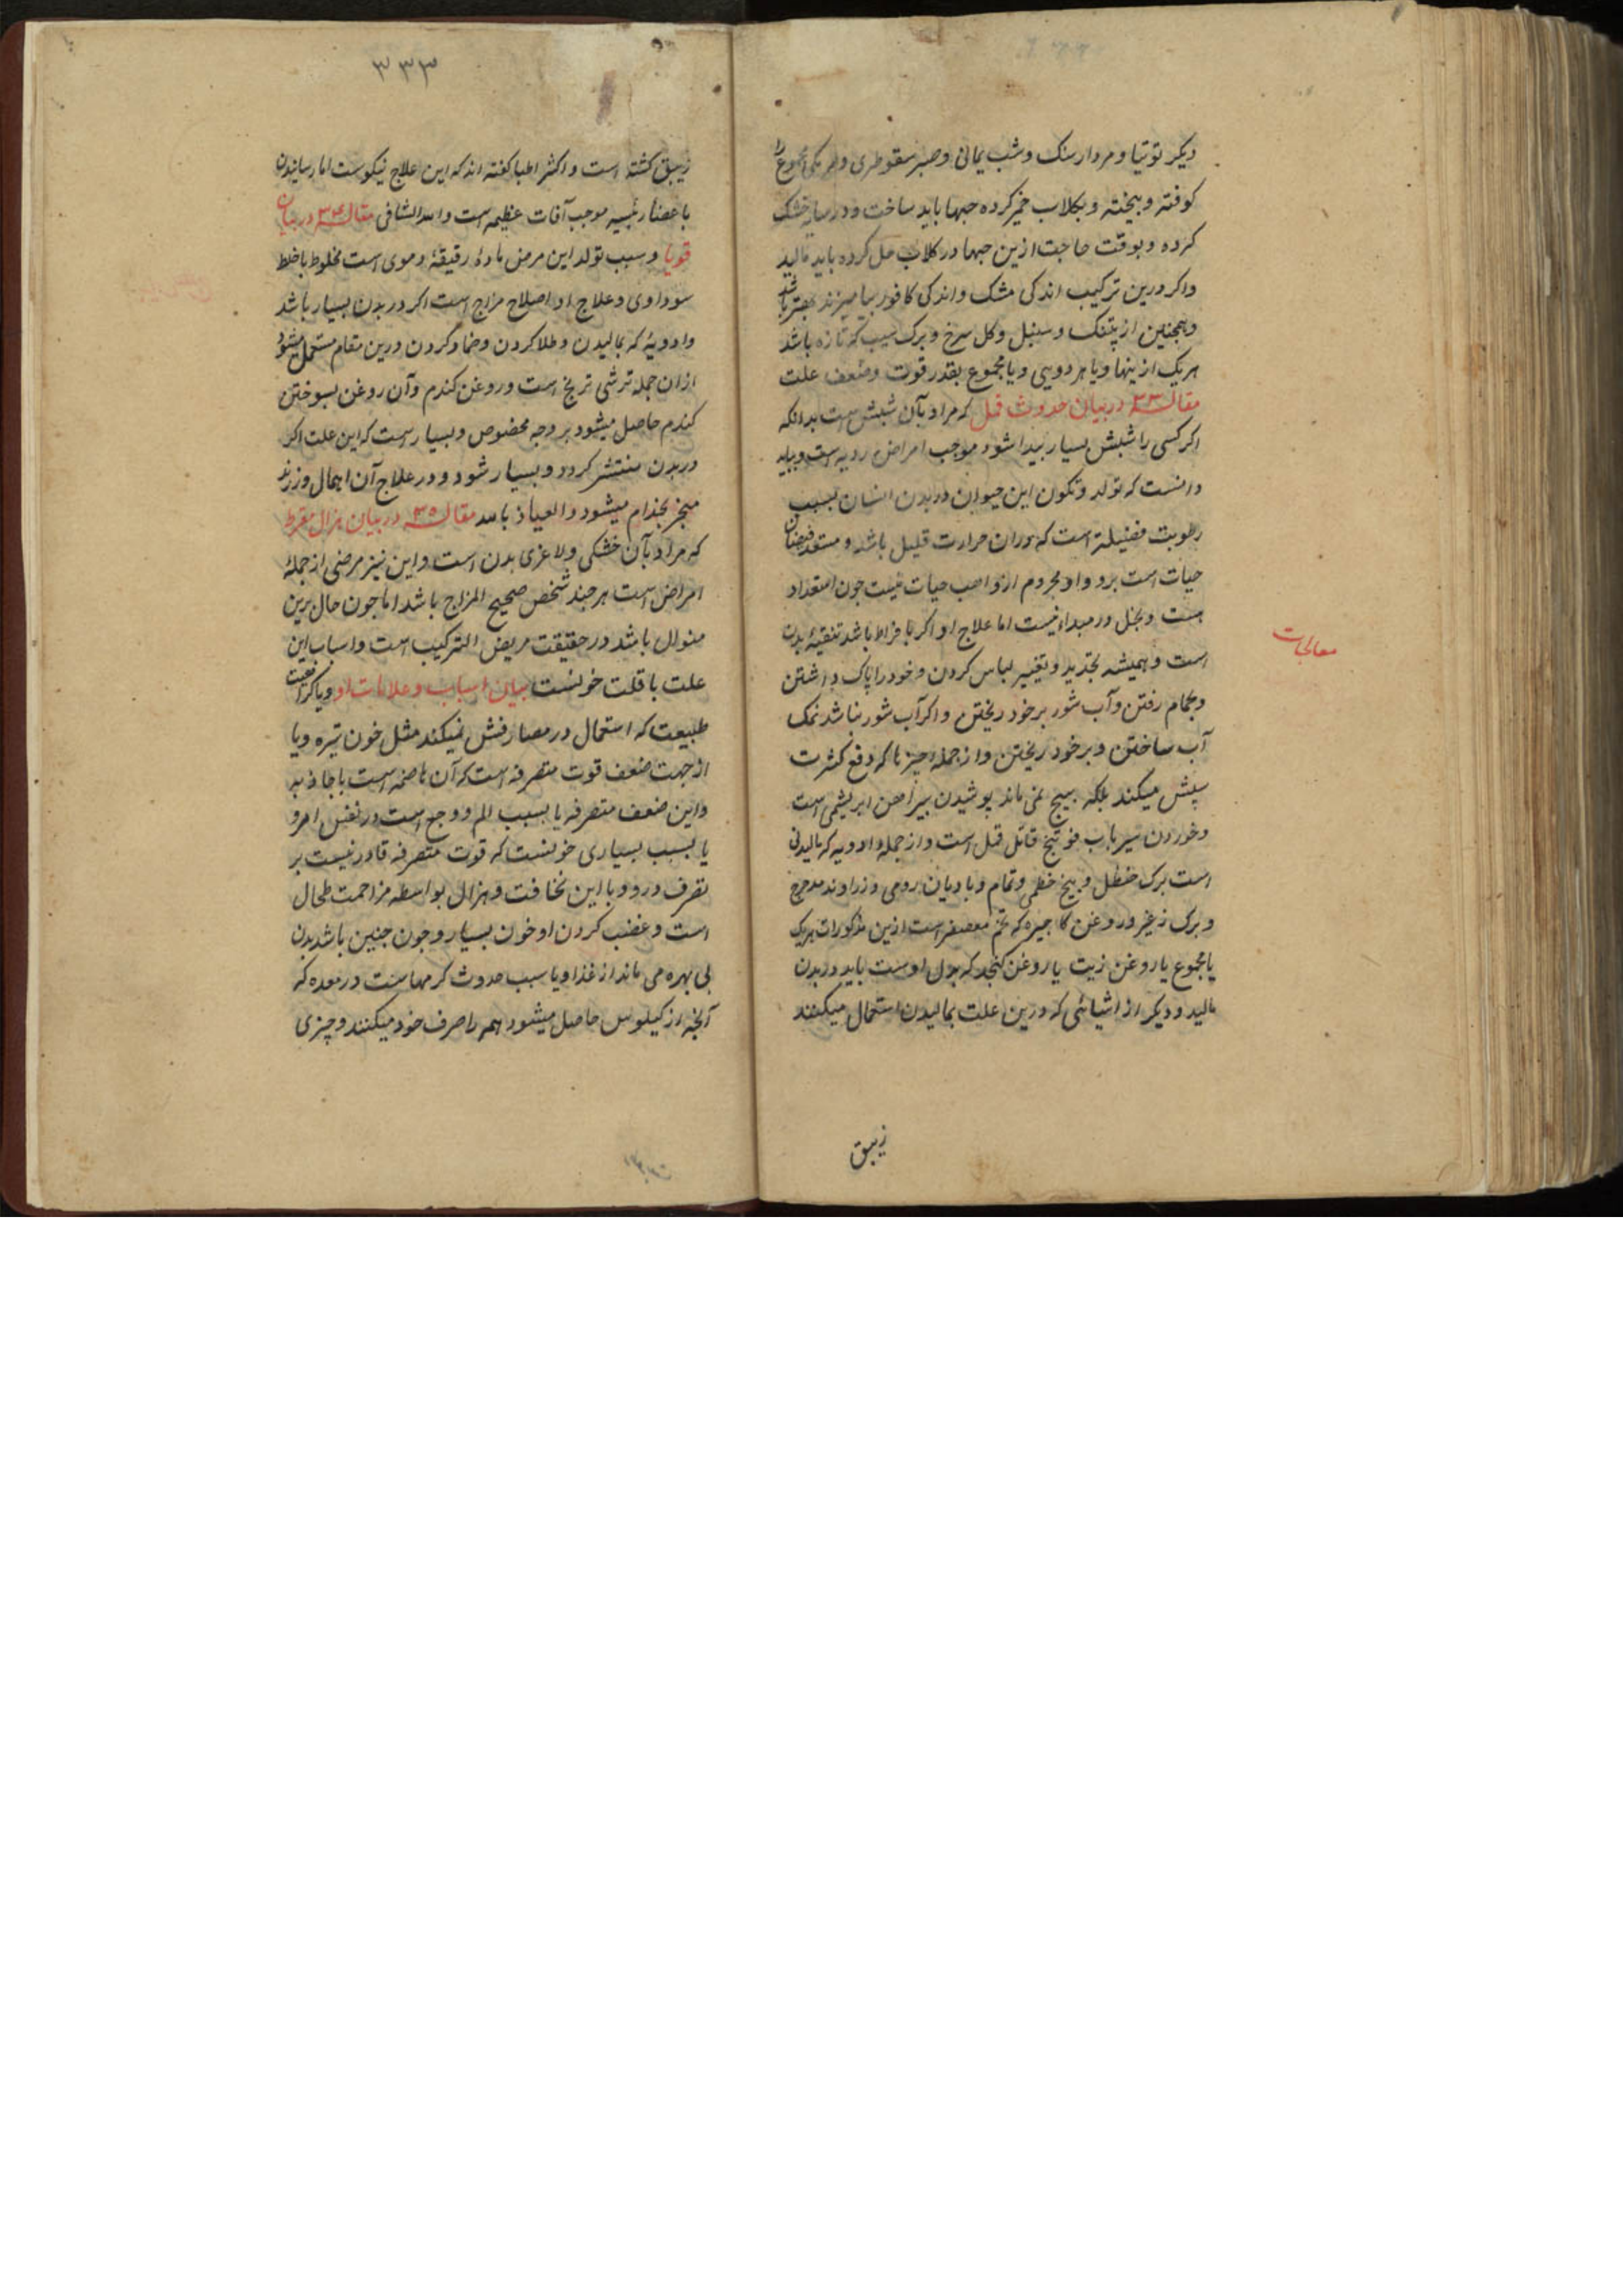 دیکر توتیا و مردار سنک و شب یمانی و صبر سقوطری و هر یکی مجموع را
کوفته و بیخته و بکلاب خمیر کرده حبها باید ساخت و در سایه خشک
کرده و بوقت حاجت ازین حبها در کلاب حل کرده باید مالید
واکر درین ترکیب اندکی مشک و اندکی کافور بیامیزند بهتر باشد
و همچنین از پتفک و سنبل و کل سرخ و برک سیب که تازه باشد
هر یک ازینها و یا هر دویی و یا مجموع بقدر قوت و ضعف علت
مقاله ۳۳ در بیان حدوث قمل که مراد بآن شپش است بدانکه
اکر کسی را شپش بسیار پیدا شود موجب امراض ردیه است و باید
دانست که تولد و تکون این حیوان در بدن انسان بسبب
رطوبت فضیلة است که دران حرارت قلیل باشد و مستعد فیضان
حیات است برو و او محروم از واهب حیات نیست چون استعداد
هست و بخل در مبداء نیست اما علاج او اکر بافراط باشد تنقیهٔ بدن
است و همیشه تجدید و تغییر لباس کردن و خود را پاک داشتن
و بحمام رفتن و آب شور بر خود ریختن و اکر آب شور نباشد نمک
آب ساختن و بر خود ریختن و از جمله چیزها که دفع کثرت
سپش میکند بلکه هیچ نمی ماند پوشیدن پیراهن ابریشمی است
و خوردن سیر باب فوتنج قاتل قمل است و از جمله ادویه که مالیدنی
است برک حنظل و بیخ خطمی و تمام و بادیان رومی و زراوند مدحرج
و برک و روغن کاجیره که تخم معصفر است ازین مذکورات هر یک
یا مجموع با روغن زیت یا روغن کنجد که بدل اوست باید در بدن
مالید و دیکر از اشیائی که درین علت بمالیدن استعمال میکنند
زیبق
معالجات
۳۳۳
زیبق کشته است و اکثر اطبا کفته اند که این علاج نیکوست اما رسانیدن
باعضاء رئیسه موجب آفات عظیمه است والله الشافی مقاله ۳۴ در بیان
قوبا و سبب تولد این مرض مادهٔ رقیقهٔ دموی است مخلوط باخلط
سوداوی و علاج او اصلاح مزاج است اکر در بدن بسیار باشد
و ادویهٔ که بمالیدن و طلا کردن و ضماد کردن درین مقام مستعمل میشود
ازان جمله ترشی ترنج است و روغن کندم و آن روغن بسوختن
کندم حاصل میشود بر وجه مخصوص و بسیار است که این علت اکر
در بدن منتشر کردد و بسیار شود و در علاج آن اهمال ورزند
منجر بجذام میشود و العیاذ بالله مقاله ۳۵ در بیان هزال مفرط
که مراد بآن خشکی و لاغری بدن است و این نیز مرضی از جملهٔ
امراض است هر چند شخص صحیح المزاج باشد اما چون حال برین
منوال باشد در حقیقت مریض الترکیب است و اسباب این
علت یا قلت خونست بیان اسباب و علامات او و یا کراهیت
طبیعت که استعمال در مصارفش نمیکند مثل خون تیره و یا
از جهت ضعف قوت متصرفه است که آن هاضمه است یا جاذبه
و این ضعف متصرفه یا بسبب الم و وجع است در نفس امرو
یا بسبب بسیاری خونست که قوت متصرفه قادر نیست بر
تصرف درو و یا این نحافت و هزال بواسطه مزاحمت طحال
است و غضب کردن او خون بسیار و چون چنین باشد بدن
بی بهره می ماند از غذا و یا سبب حدوث کرمهاست در معده که
آنچه از کیلوس حاصل میشود همه را صرف خود میکنند و چیزی